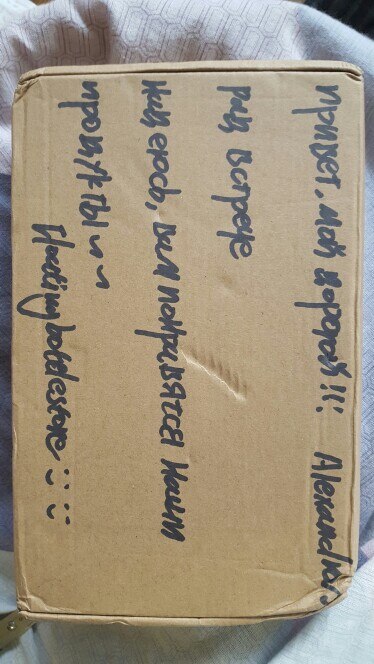 Привет, мой дорогой!!!
рад встрече
надеюсь, вам понравятся наши
продукты ~ ~